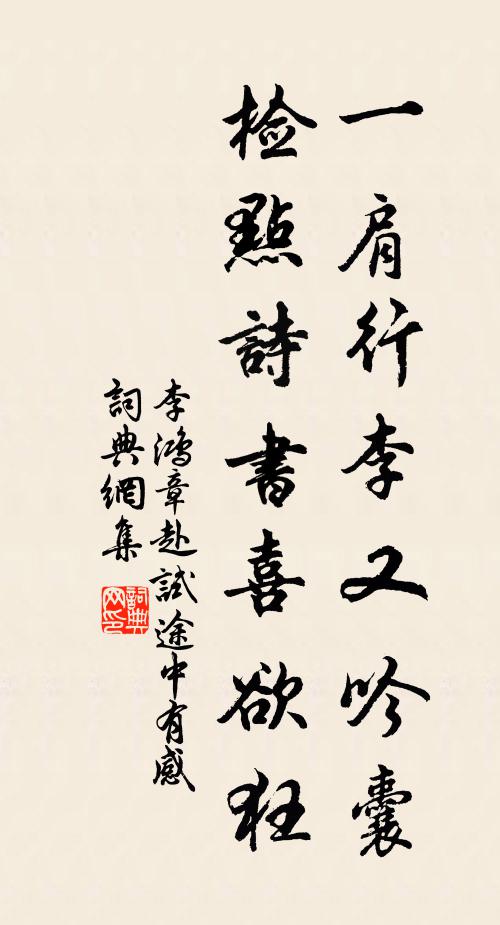 一肩行李又吟囊
檢點詩書喜欲狂
李鴻章赴試途中有感
詞典網集
詞典网印